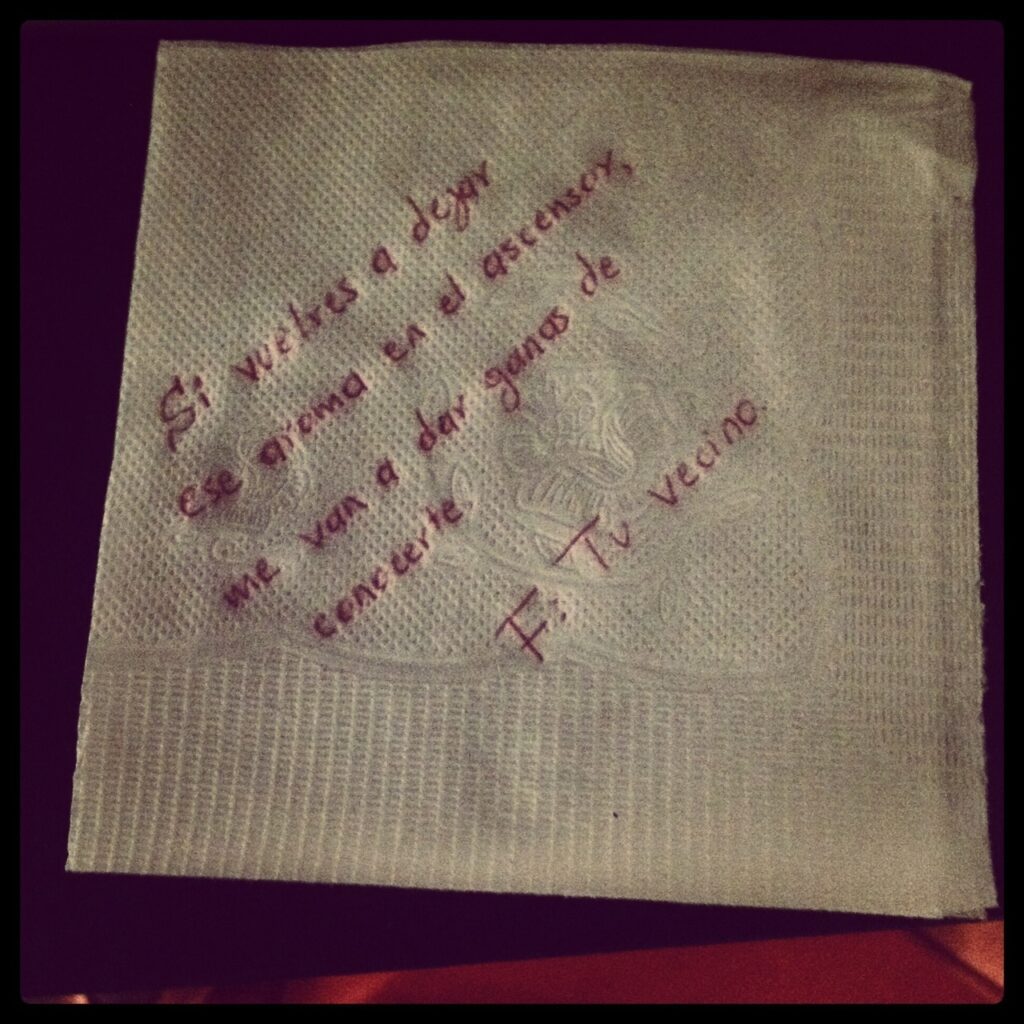 Si vuelves a dejar
ese aroma en el ascensor,
me van a dar ganas de
conocerte.
F: Tu vecino.